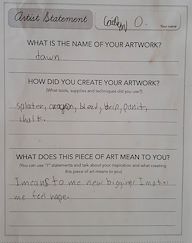 Artist Statement
O.
Your name
WHAT IS THE NAME OF YOUR ARTWORK?
dawn
HOW DID YOU CREATE YOUR ARTWORK?
(What tools, supplies and techniques did you use?)
splater, crayon, blend, drip, paint,
chalk.
WHAT DOES THIS PIECE OF ART MEAN TO YOU?
(You can use "I" statements and talk about your inspiration and what creating
this piece of art means to you)
I means to me new bigging! I make
me feel hope.